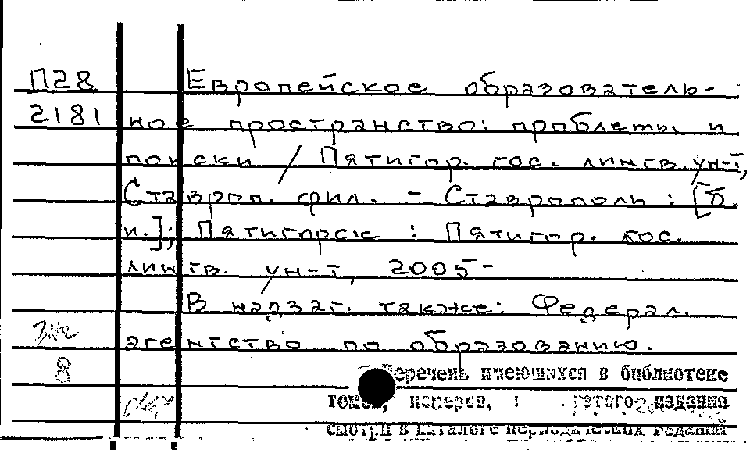 П28
2181
Европейское образователь-
ное пространство: проблемы и
поиски / Пятигор. гос. лингв. ун-т,
Ставроп. фил. - Ставрополь : [б.
и.]; Пятигорск : Пятигор. гос.
лингв. ун-т, 2005-
В надзаг. также: Федерал.
агентство по образованию.
8
Перечень имеющихся в библиотеке
томов, номеров, этого издания
смотри в каталоге периодических изданий